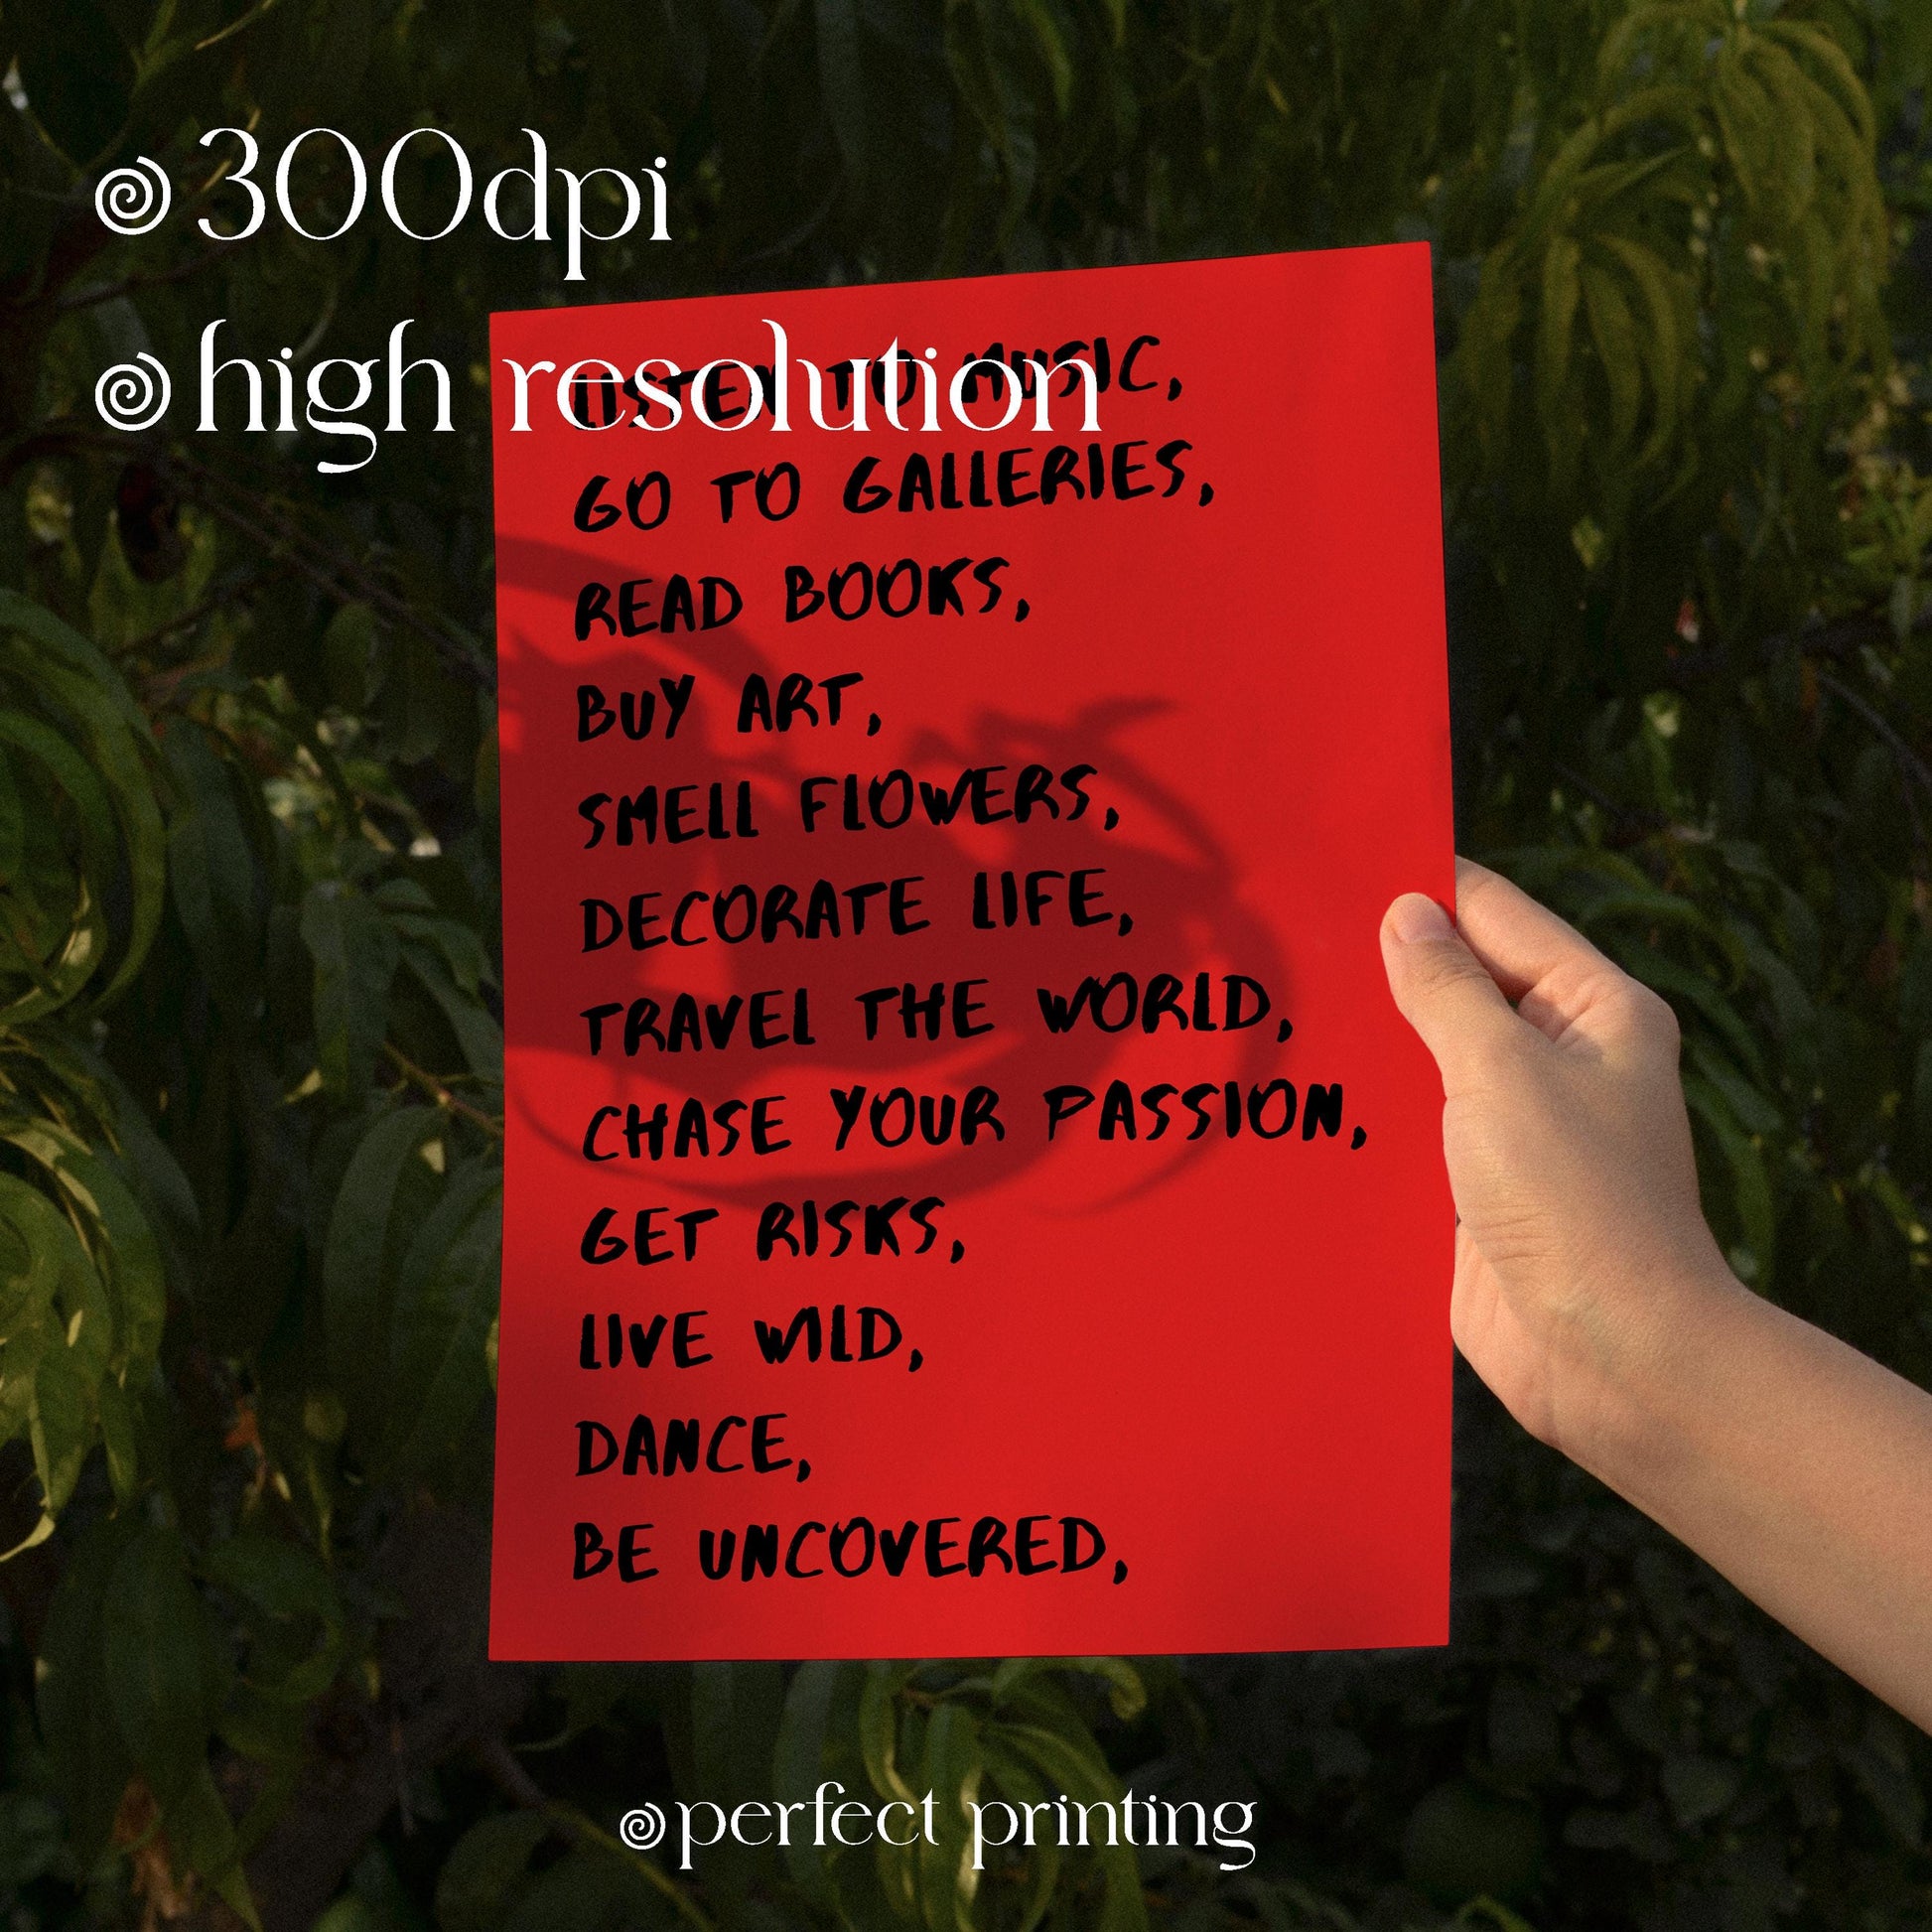 300dpi
high resolution
LISTEN TO MUSIC,
GO TO GALLERIES,
READ BOOKS,
BUY ART,
SMELL FLOWERS,
DECORATE LIFE,
TRAVEL THE WORLD,
CHASE YOUR PASSION,
GET RISKS,
LIVE WILD,
DANCE,
BE UNCOVERED,
perfect printing